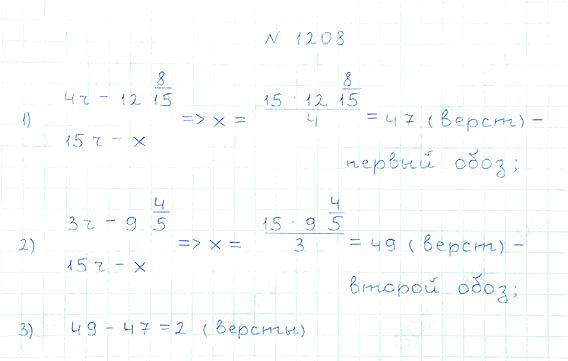 N 1208
1) 4ч – 12 8/15 => x = (15 · 12 8/15)/4 = 47 (верст) –
15ч – x
первый обоз;
2) 3ч – 9 4/5 => x = (15 · 9 4/5)/3 = 49 (верст) –
15ч – x
второй обоз;
3) 49 – 47 = 2 (версты)